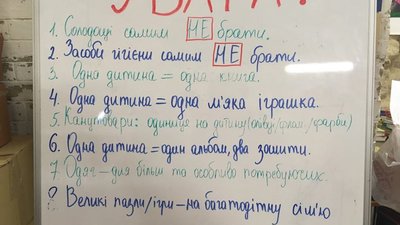 УВАГА!
1. Солодощі самим НЕ брати.
2. Засоби гігієни самим НЕ брати.
3. Одна дитина = одна книга.
4. Одна дитина = одна м'яка іграшка.
5. Канцтовари: одиниця на дитину (олівці/флом./фарби)
6. Одна дитина = один альбом, два зошити.
7. Одяг — для більш та особливо потребуючих.
Великі пазли/ігри — на багатодітну сім'ю